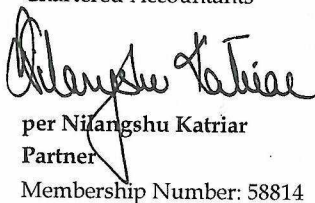 Chartered Accountants
Nilangshu Katriar
per Nilangshu Katriar
Partner
Membership Number: 58814